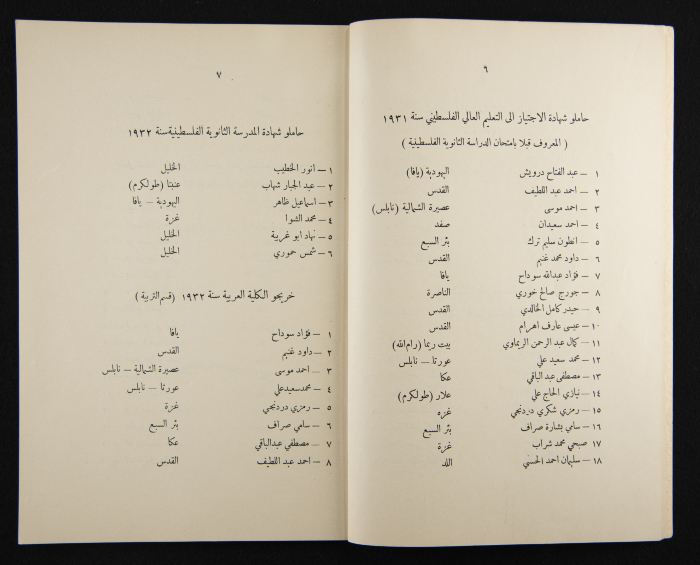 ٦
حاملو شهادة الاجتياز الى التعليم العالي الفلسطيني سنة ١٩٣١
( المعروف قبلا بامتحان الدراسة الثانوية الفلسطينية )
١ — عبد الفتاح درويش اليهودية (يافا)
٢ — احمد عبد اللطيف القدس
٣ — احمد موسى عصيرة الشمالية (نابلس)
٤ — احمد سعيدان صفد
٥ — انطون سليم ترك بئر السبع
٦ — داود محمد غنيم القدس
٧ — فؤاد عبدالله سوداح يافا
٨ — جورج صالح خوري الناصرة
٩ — حيدر كامل الخالدي القدس
١٠ — عيسى عارف اهرام القدس
١١ — كمال عبد الرحمن الريماوي بيت ريما (رام الله)
١٢ — محمد سعيد علي عورتا — نابلس
١٣ — مصطفى عبد الباقي عكا
١٤ — نيازي الحاج علي علار (طولكرم)
١٥ — رمزي شكري دردنجي غزه
١٦ — سامي بشارة صراف بئر السبع
١٧ صبحي محمد شراب غزة
١٨ — سليمان احمد الحسني اللد
٧
حاملو شهادة المدرسة الثانوية الفلسطينية سنة ١٩٣٢
١ — انور الخطيب الخليل
٢ — عبد الجبار شهاب عنبتا (طولكرم)
٣ — اسماعيل ظاهر اليهودية — يافا
٤ — محمد الشوا غزة
٥ — نهاد ابو غربية الخليل
٦ — شمس حموري الخليل
خريجو الكلية العربية سنة ١٩٣٢ (قسم التربية)
١ — فؤاد سوداح يافا
٢ — داود غنيم القدس
٣ — احمد موسى عصيرة الشمالية — نابلس
٤ — محمد سعيد علي عورتا — نابلس
٥ — رمزي دردنجي غزة
٦ — سامي صراف بئر السبع
٧ — مصطفي عبدالباقي عكا
٨ — احمد عبد اللطيف القدس